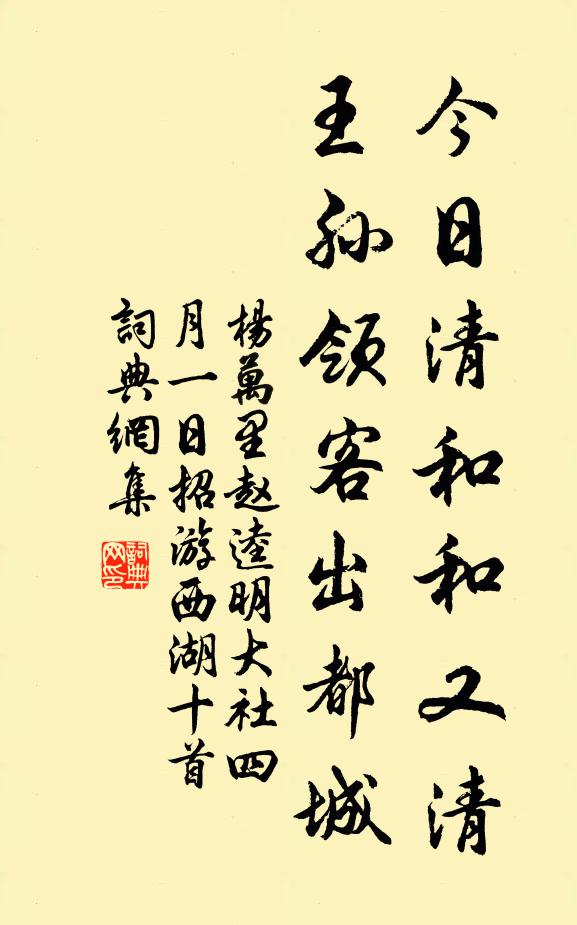 今日清和和又清
王孙领客出都城
楊萬里赵逵明大社四
月一日招游西湖十首
詞典網集
詞典网印